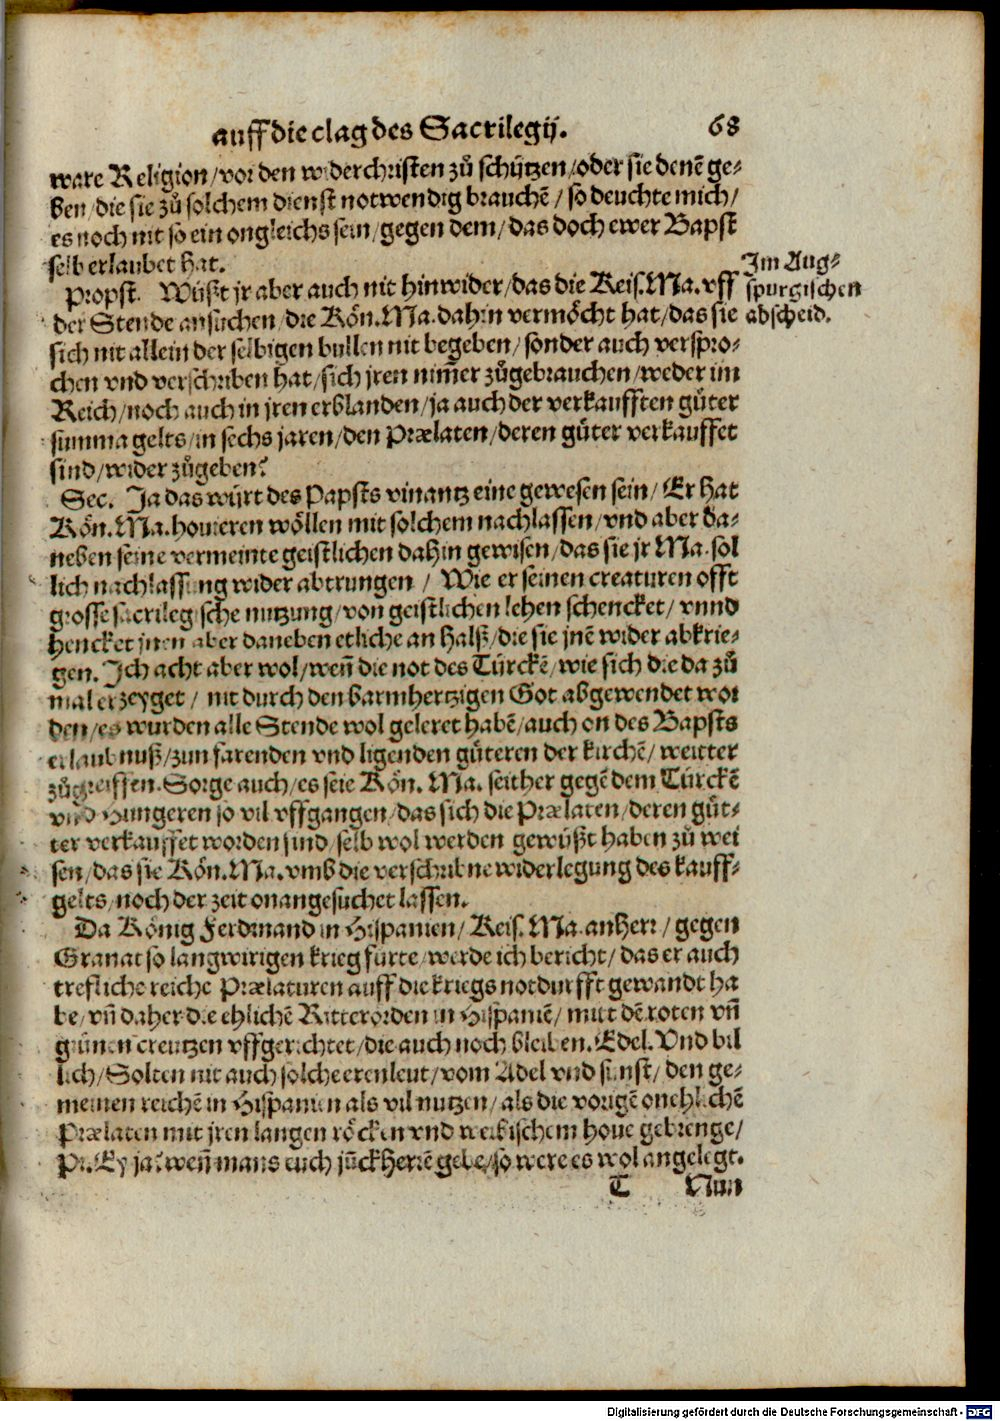 auff die clag des Sacrilegij. 68
ware Religion/vor den widerchristen zů schützen/oder sie denē ge-
ben/die sie zů solchem dienst notwendig brauchē/so deuchte mich/
es noch nit so ein ongleichs sein/gegen dem/das doch ewer Bapst
selb erlaubet hat.
Propst. Wüßt jr aber auch nit hinwider/das die Keis. Ma. vff
der Stende ansuchen/die Kön. Ma. dahin vermöcht hat/das sie
sich nit allein der selbigen bullen nit begeben/sonder auch verspro-
chen vnd verschriben hat/sich jren nim̄er zůgebrauchen/weder im
Reich/noch auch in jren erblanden/ja auch der verkaufften gůter
summa gelts/in sechs jaren/den Prælaten/deren gůter verkauffet
sind/wider zůgeben?
Im Aug-
spurgischen
abscheid.
Sec. Ja das würt des Papsts vinantz eine gewesen sein/Er hat
Kön. Ma. hofieren wöllen mit solchem nachlassen/vnd aber da-
neben seine vermeinte geistlichen dahin gewisen/das sie jr Ma. sol
lich nachlassung wider abtrungen/Wie er seinen creaturen offt
grosse sacrilegische nutzung/von geistlichen lehen schencket/vnnd
hencket jnen aber daneben etliche an halß/die sie jnē wider abkrie-
gen. Ich acht aber wol/wen̄ die not des Türckē/wie sich die da zů
mal erzeyget/nit durch den barmhertzigen Got abgewendet wor
den/es wurden alle Stende wol geleret habē/auch on des Bapsts
erlaubnuß/zun farenden vnd ligenden gůteren der kirchē/weitter
zůgreiffen. Sorge auch/es seie Kön. Ma. seither gegē dem Türckē
vnd Hungeren so vil vffgangen/das sich die Prælaten/deren gůt-
ter verkauffet worden sind/selb wol werden gewüßt haben zů wei
sen/das sie Kön. Ma. vmb die verschribne widerlegung des kauff-
gelts/noch der zeit onangesuchet lassen.
Da König Ferdinand in Hispanien/Keis. Ma. anherr/gegen
Granat so langwirigen krieg fürte/werde ich bericht/das er auch
trefliche reiche Prælaturen auff die kriegs notdurfft gewandt ha
be/vn̄ daher die ehlichē Ritterorden in Hispaniē/mitt dē roten vn̄
grünen creutzen vffgerichtet/die auch noch bleiben. Edel. Vnd bil
lich/Solten nit auch solche erenleut/vom Adel vnd sunst/den ge-
meinen reichē in Hispanien als vil nutzen/als die vorigē onehlichē
Prælaten mit jren langen röcken vnd weibischem houe gebrenge/
Pr. Ey ja? wen̄ mans euch jūckherrē gebe/so were es wol angelegt.
T Nun
Digitalisierung gefördert durch die Deutsche Forschungsgemeinschaft - DFG